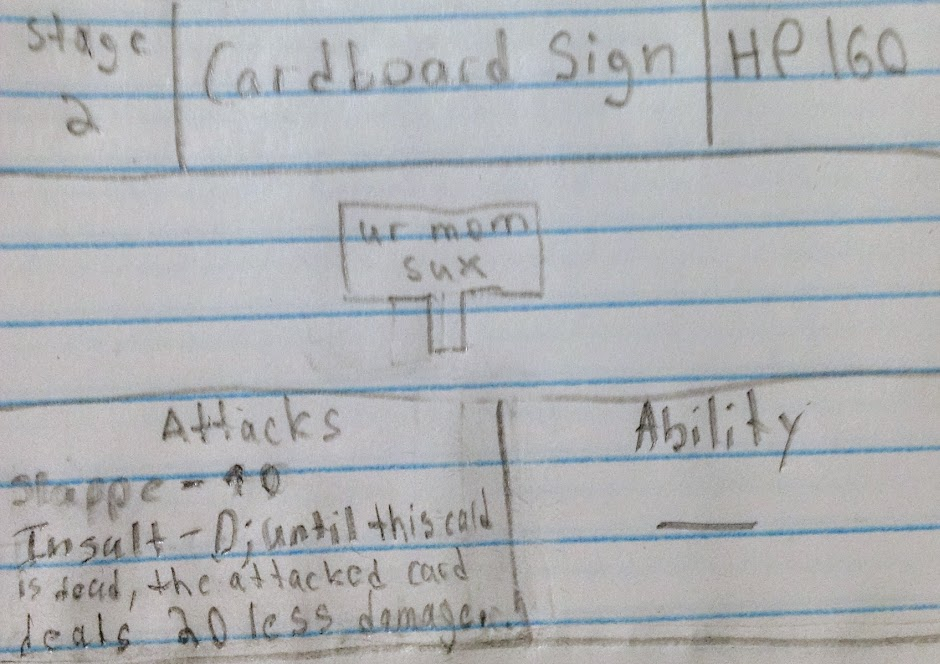 Stage 2
Cardboard Sign
HP 160
ur mom
sux
Attacks
Ability
Insult - 0; until this card
is dead, the attacked card
deals 20 less damage.